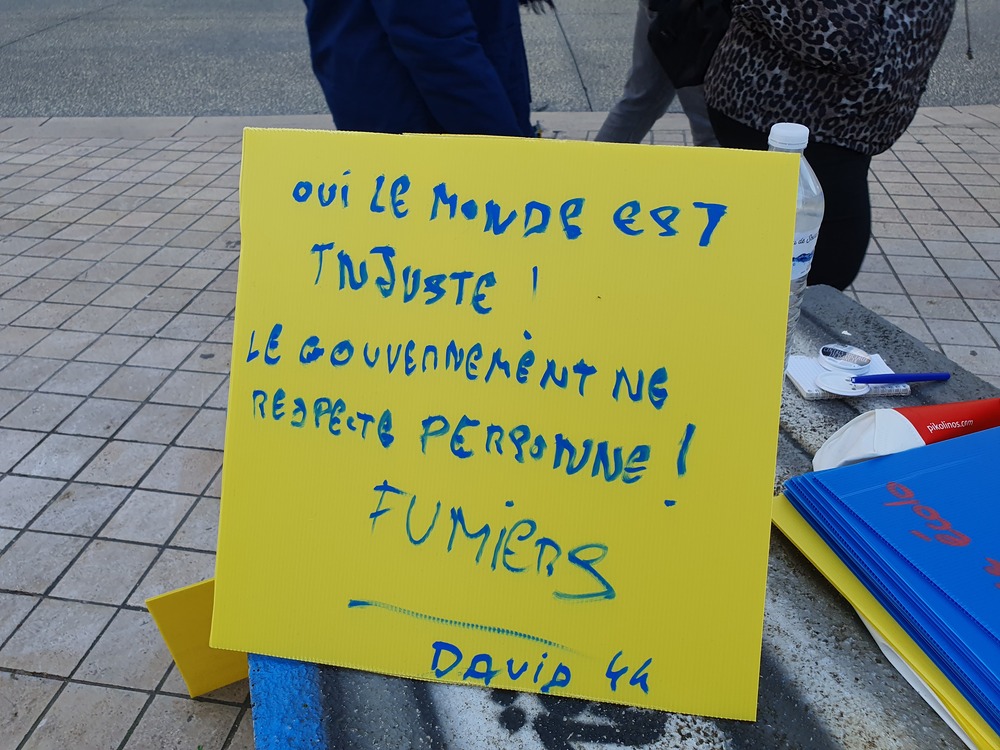 OUi LE MONDE EST
INJUSTE !
LE GOUVERNEMENT NE
RESPECTE PERSONNE !
FUMiERS
DAViD 44
pikolinos.com
écolo